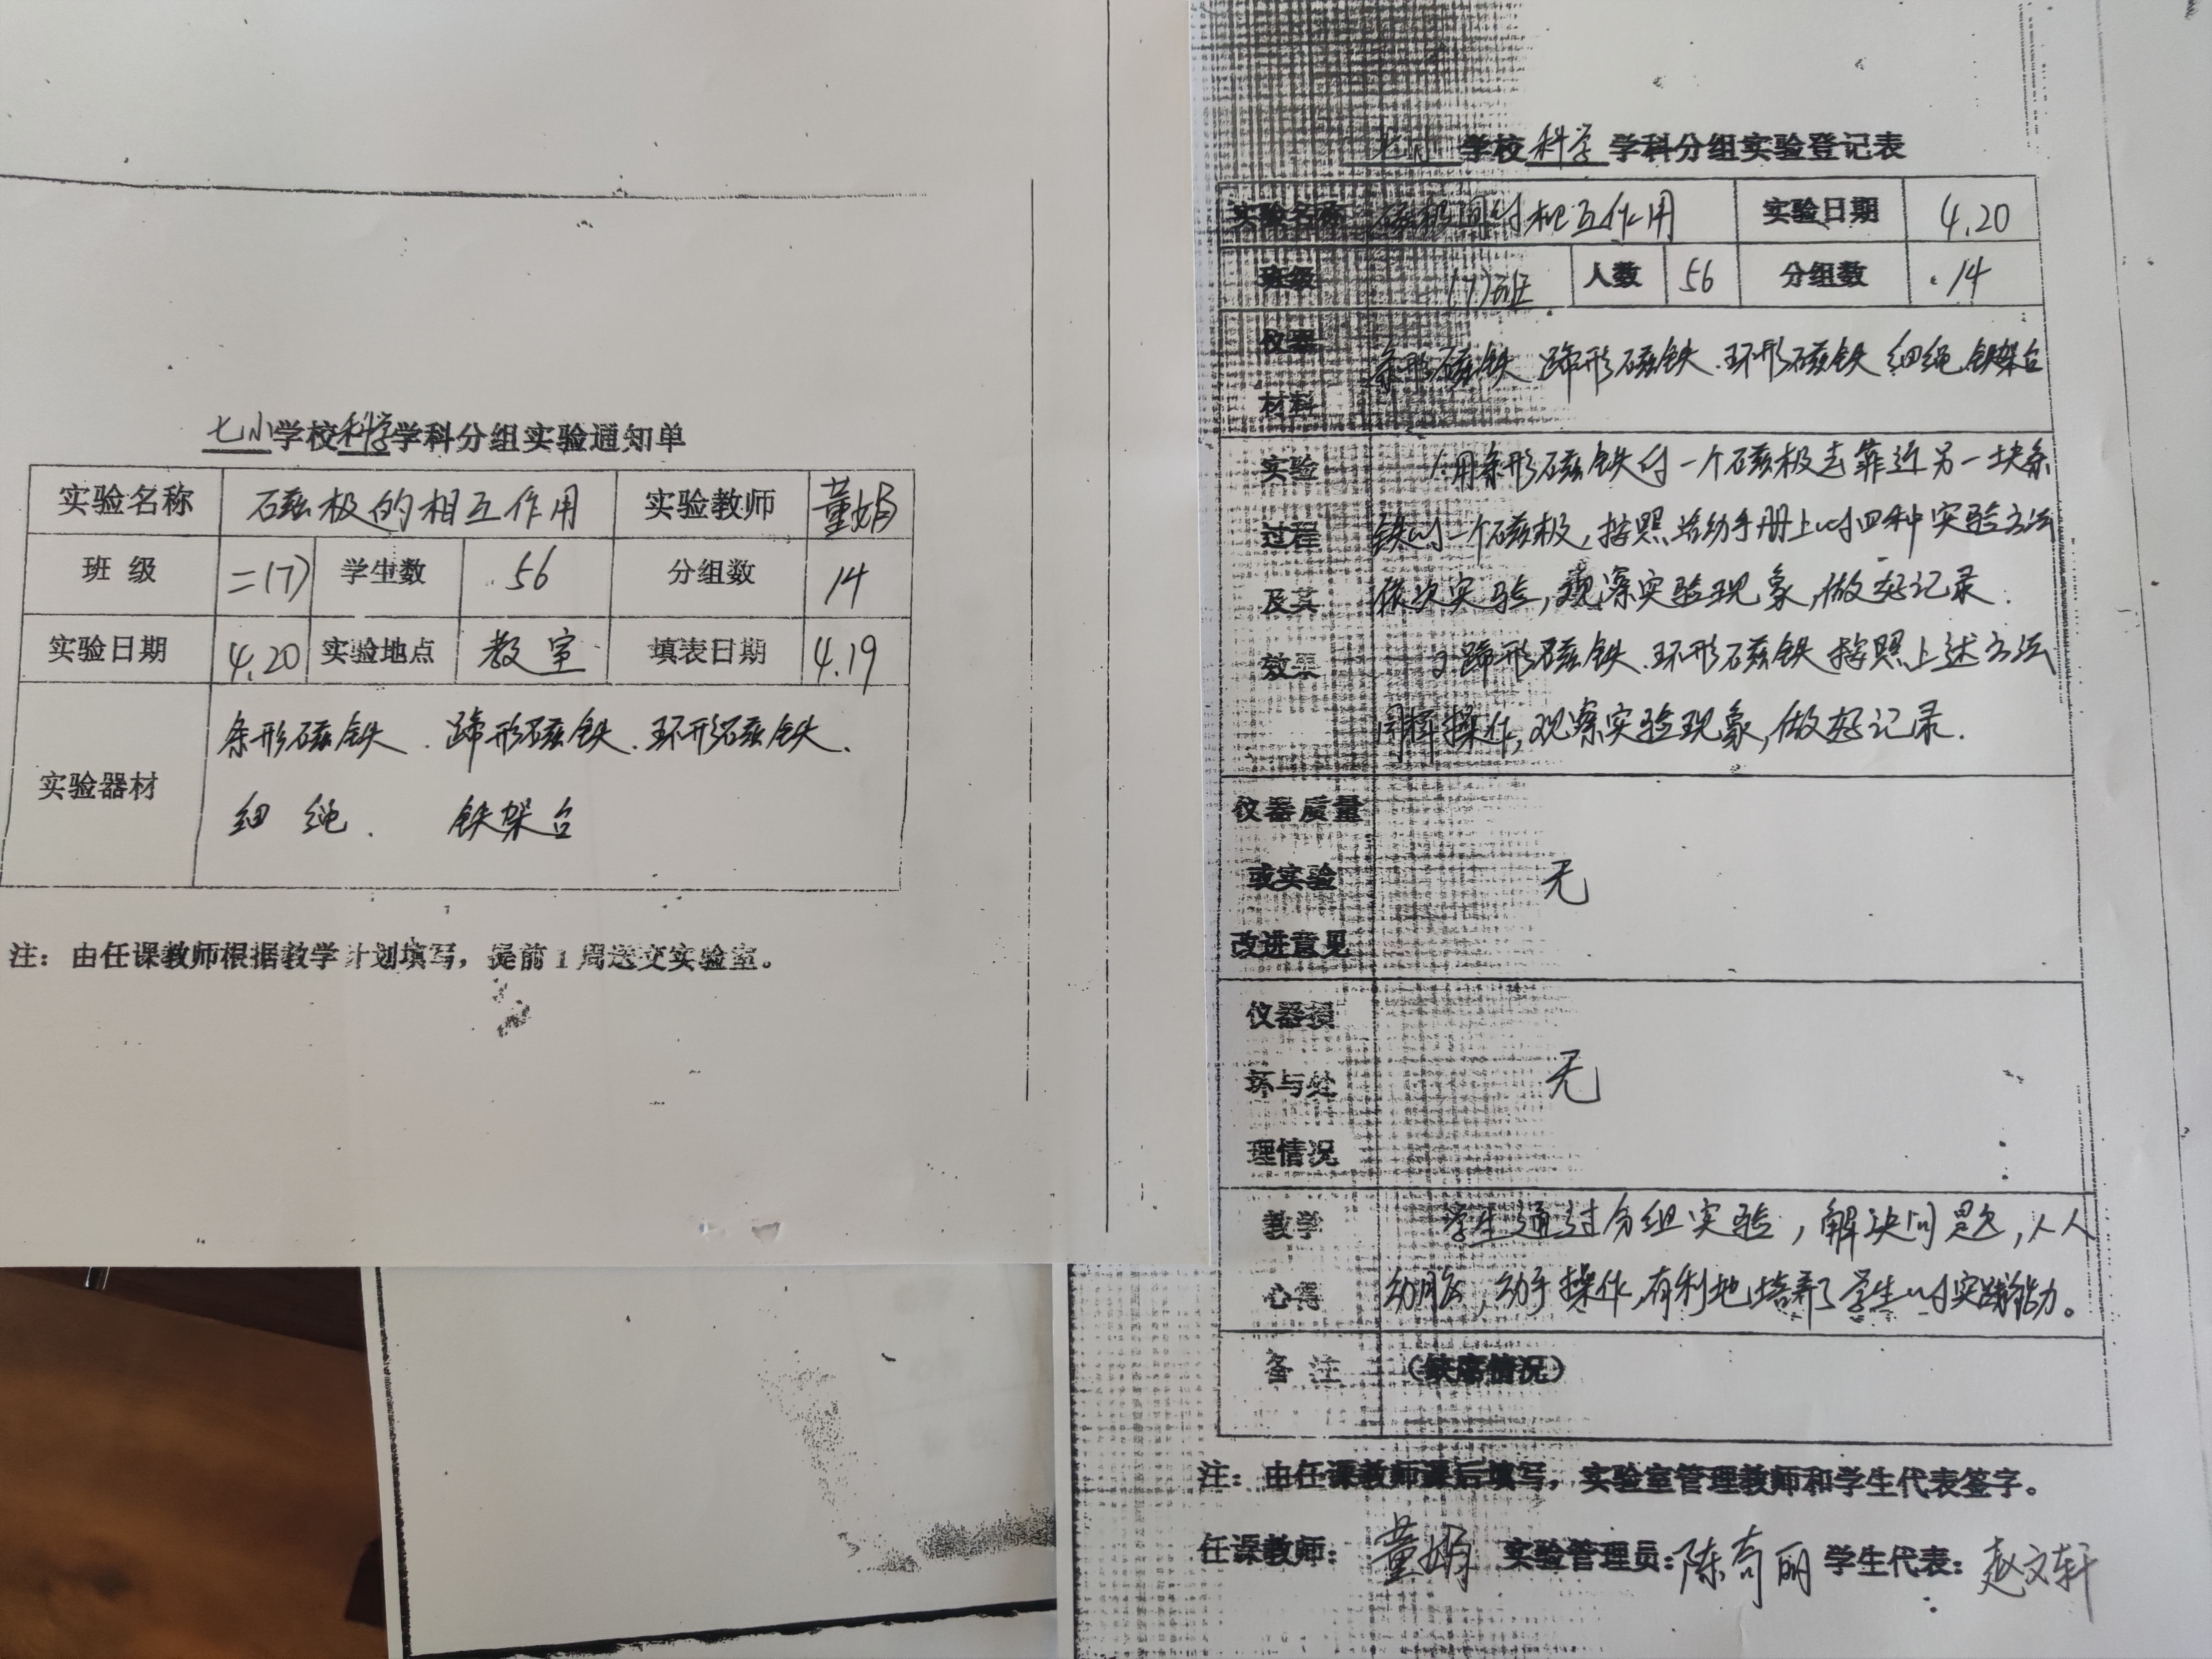 七小学校科学学科分组实验通知单
实验名称 磁极的相互作用 实验教师 董娟
班级 二(7) 学生数 56 分组数 14
实验日期 4.20 实验地点 教室 填表日期 4.19
实验器材 条形磁铁、蹄形磁铁、环形磁铁、
细绳、 铁架台
注：由任课教师根据教学计划填写，提前1周送交实验室。
七小学校科学学科分组实验登记表
实验名称 磁极间的相互作用 实验日期 4.20
班级 (7)班 人数 56 分组数 14
仪器
材料
条形磁铁 蹄形磁铁、环形磁铁 细绳 铁架台
实验
过程
及其
效果
1.用条形磁铁的一个磁极去靠近另一块条
铁的一个磁极，按照活动手册上的四种实验方法
依次实验，观察实验现象，做好记录.
2.蹄形磁铁、环形磁铁按照上述方法
同样操作，观察实验现象，做好记录.
仪器质量
或实验
改进意见
无
仪器损
坏与处
理情况
无
教学
心得
学生通过分组实验，解决问题，人人
动脑，动手操作，有利地培养了学生的实践能力。
备注 （缺席情况）
注：由任课教师课后填写，实验室管理教师和学生代表签字。
任课教师：董娟 实验管理员：陈奇丽 学生代表：赵文轩